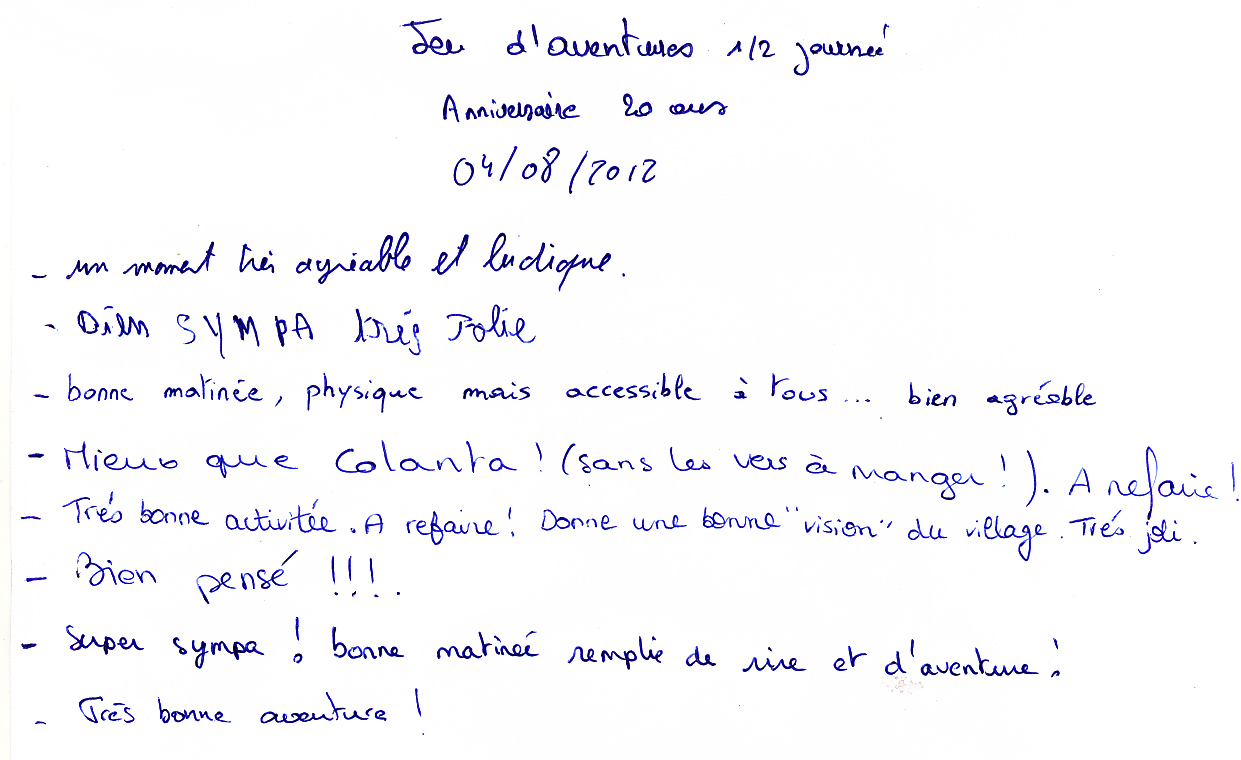 Jeu d'aventures 1/2 journeé
Anniversaire 20 ans
04/08/2012
- un moment très agréable et ludique.
- Bien SYMPA trés Jolie
- bonne matinée, physique mais accessible à tous... bien agréable
- Mieux que Colanta ! (sans les vers à manger !). A refaire !
- Trés bonne activitée. A refaire ! Donne une bonne "vision" du village. Trés joli.
- Bien pensé !!!.
- Super sympa ! bonne matineé remplie de rire et d'aventure !
- Très bonne aventure !